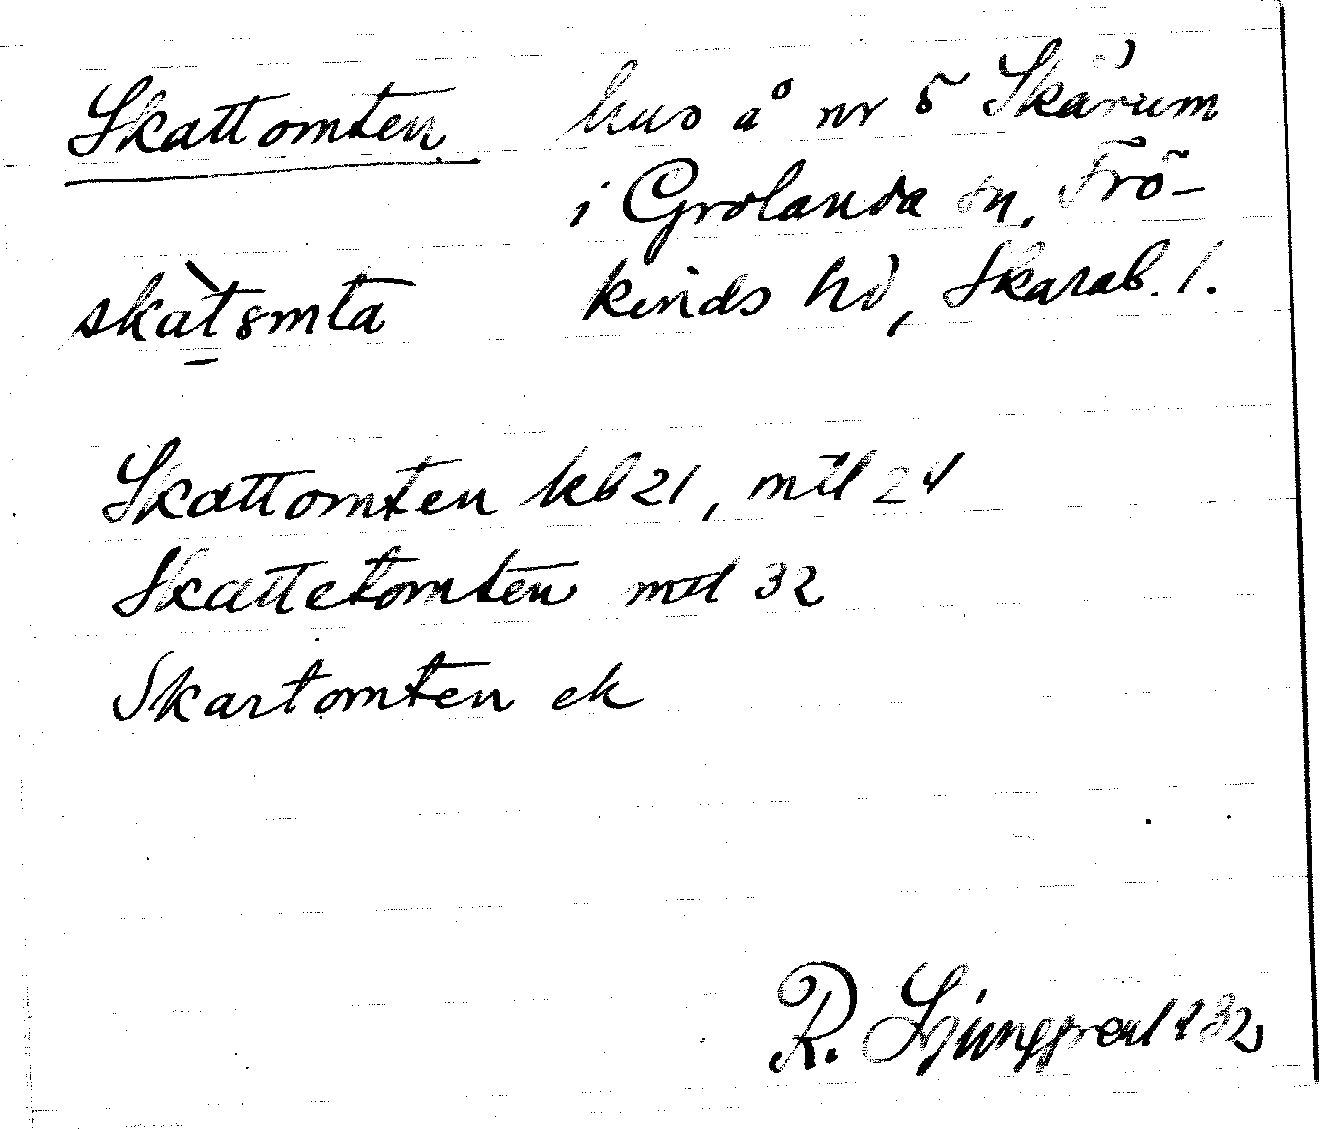 Skattomten hus å nr 5 Skärum
i Grolanda sn, Frö-
skàtsmta kinds hd, Skarab. l.
Skattomten kb 21, mtl 24
Skattetomten mtl 32
Skartomten ek
R. Ljunggren 1932